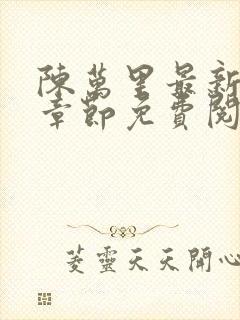 陳萬里最新
章節免費閱
菱靈天天開心